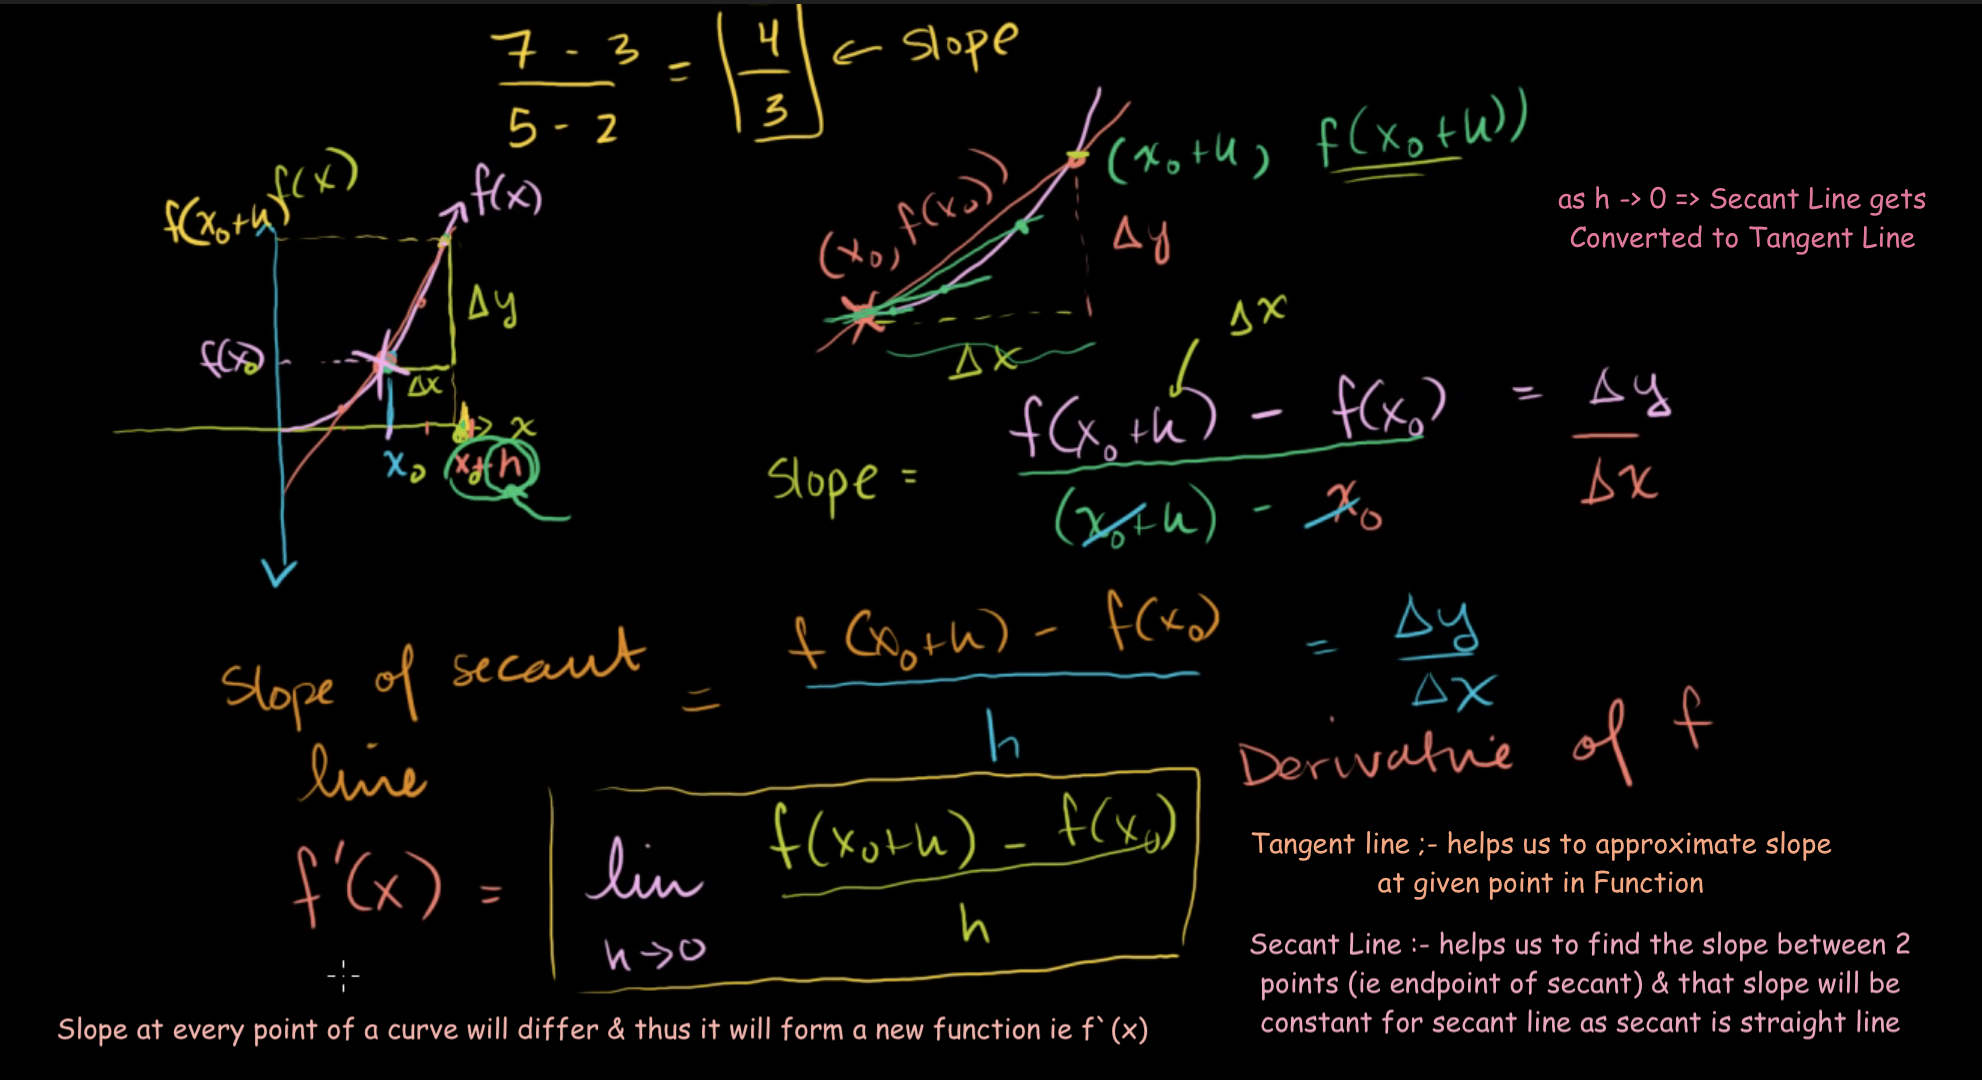 7 - 3
5 - 2
= 4
3
← Slope
f(x₀+h)
f(x)
f(x)
f(x₀)
Δy
Δx
x
x₀
x₀+h
(x₀, f(x₀))
(x₀+h, f(x₀+h))
Δy
Δx
Δx
as h -> 0 => Secant Line gets
Converted to Tangent Line
Slope = f(x₀+h) - f(x₀)
(x₀+h) - x₀
= Δy
Δx
Slope of secant
line
= f(x₀+h) - f(x₀)
h
= Δy
Δx
Derivative of f
f'(x) = lim
h→0
f(x₀+h) - f(x₀)
h
Tangent line ;- helps us to approximate slope
at given point in Function
Secant Line :- helps us to find the slope between 2
points (ie endpoint of secant) & that slope will be
constant for secant line as secant is straight line
Slope at every point of a curve will differ & thus it will form a new function ie f`(x)